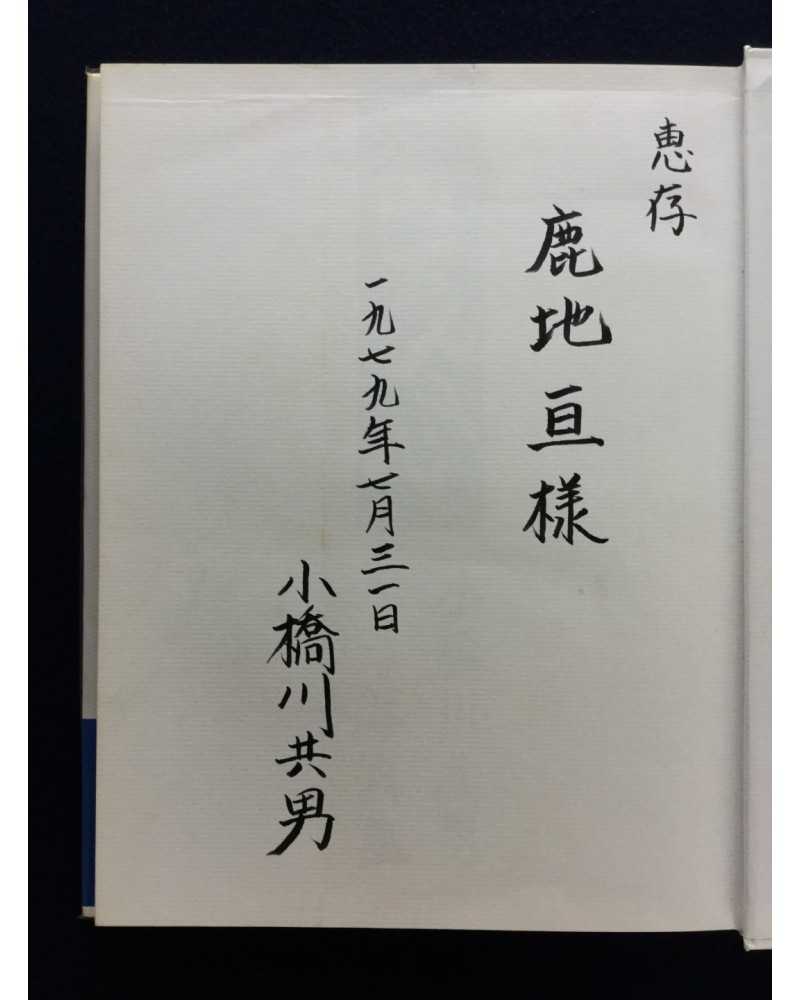 恵存
鹿地亘様
一九七九年七月三一日
小橋川共男